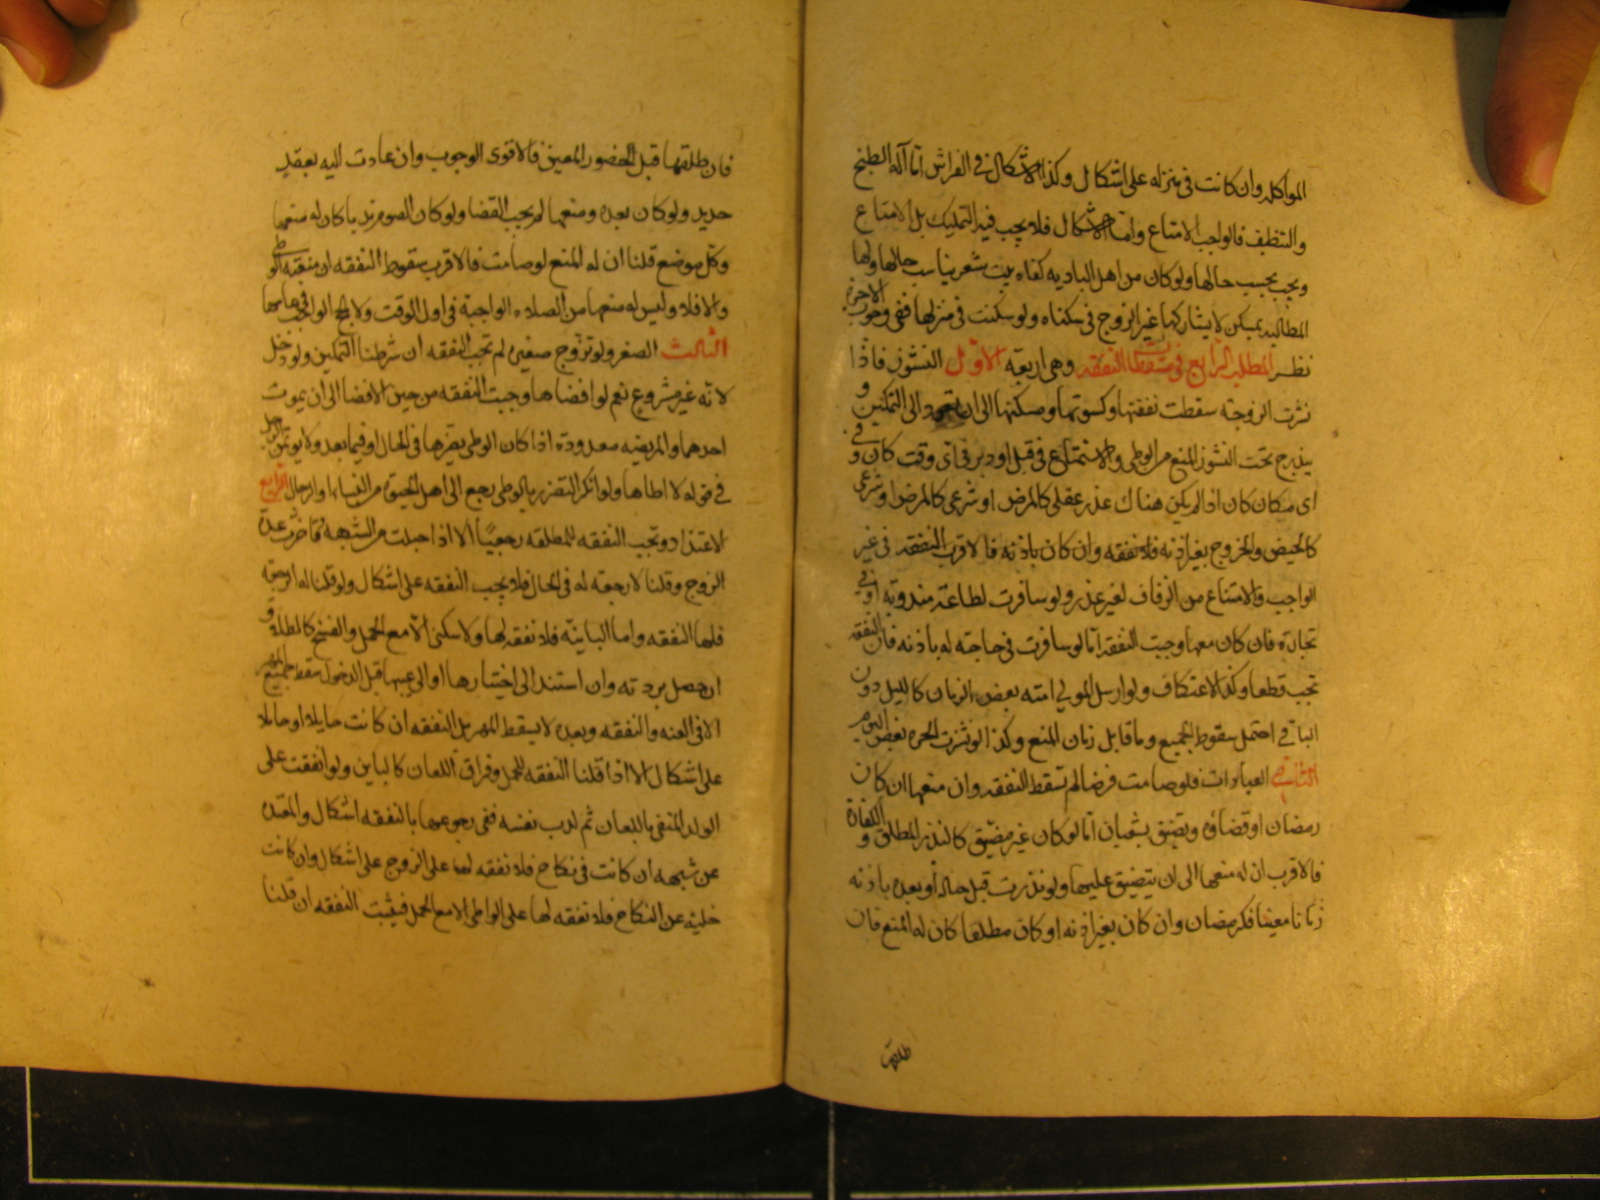 المواكله وان كانت فى منزله على اشكال وكذا الاشكال فى الفراش اما آلة الطبخ
والتنظف فالواجب الامتاع واما الاشكال فلا يجب فيه التمليك بل الامتاع
ويجب بحسب حالها ولو كان من اهل الباديه كفاه بيت شعر يناسب حالها ولها
المطالبه بمسكن لا يشاركها غير الزوج فى سكناه ولو سكنت فى منزلها ففى وجوب الاجرة
نظر المطلب الرابع فى مسقطات النفقه وهى اربعه الاول النشوز فاذا
نشزت الزوجه سقطت نفقتها وكسوتها ومسكنها الى ان تعود الى التمكين و
يندرج تحت النشوز المنع من الوطى والاستمتاع فى قبل او دبر فى اى وقت كان وفى
اى مكان كان اذا لم يكن هناك عذر عقلى كالمرض او شرعى كالمرض او شرعى
كالحيض والخروج بغير اذنه فلا نفقه وان كان باذنه فالاقرب النفقه فى غير
الواجب والامتناع من الزفاف لغير عذر ولو سافرت لطاعة مندوبه او فى
تجارة فان كان معها وجبت النفقه اما لو سافرت فى حاجته له باذنه فان النفقه
تجب قطعا وكذا الاعتكاف ولو ارسل المولى امته بعض الزمان كالليل دون
الباقى احتمل سقوط الجميع وما قابل زمان المنع وكذا لو نشزت الحره بعض اليوم
الثانى العبادات فلو صامت فرضا لم تسقط النفقه وان منعها ان كان
رمضان او قضاؤه وتضيق بشعبان اما لو كان غير مضيق كالنذر المطلق والكفارة
فالاقرب ان له منعها الى ان يتضيق عليها ولو نذرت قبل حاله او بعده باذنه
زمانا معينا فكرمضان وان كان بغير اذنه او كان مطلقا كان له المنع فان
طلقها
فان طلقها قبل الحضور المعين فالاقوى الوجوب وان عادت اليه بعقد
جديد ولو كان بعده ومنعها لم يجب القضا ولو كان الصوم ندبا كان له منعها
وكل موضع قلنا ان له المنع لو صامت فالاقرب سقوط النفقه ان منعته الوطى
والا فلا وليس له منعها من الصلاه الواجبة فى اول الوقت ولا الحج الواجب
الثالث الصغر ولو تزوج صغيره لم تجب النفقه ان شرطنا التمكين ولو دخل
لانه غير مشروع نعم لو افضاها وجبت النفقه من حين الافضا الى ان يموت
احدهما والمريضه معذورة اذا كان الوطى يضرها فى الحال او فيما بعد ولا يوتمن الرجل
فى قوله لا اطاها ولو انكر التضرر بالوطى رجع الى اهل الخبره من النساء او الرجال الرابع
الاعتداد وتجب النفقه للمطلقه رجعيا الا اذا حبلت من الشبهه وتاخرت عدة
الزوج وقلنا لا رجعه له فى الحال فلا يجب النفقه على اشكال ولو قلنا له الرجعه
فلها النفقه واما الباينه فلا نفقه لها ولا سكنى الا مع الحمل والفسخ كالطلاق
ان حصل بردته وان استند الى اختيارها او الى عيبها قبل الدخول سقط جميع المهر
الا فى العنه والنفقه وبعده لا يسقط المهر بل النفقه ان كانت حايلا او حاملا
على اشكال الا اذا قلنا النفقه للحمل وفراق اللعان كالباين ولو انفقت على
الولد المنفى باللعان ثم كذب نفسه ففى رجوعها بالنفقه اشكال والمعتده
عن شبهه ان كانت فى نكاح فلا نفقه لها على الزوج على اشكال وان كانت
خليه عن النكاح فلا نفقه لها على الواطى الا مع الحمل فيثبت النفقه ان قلنا